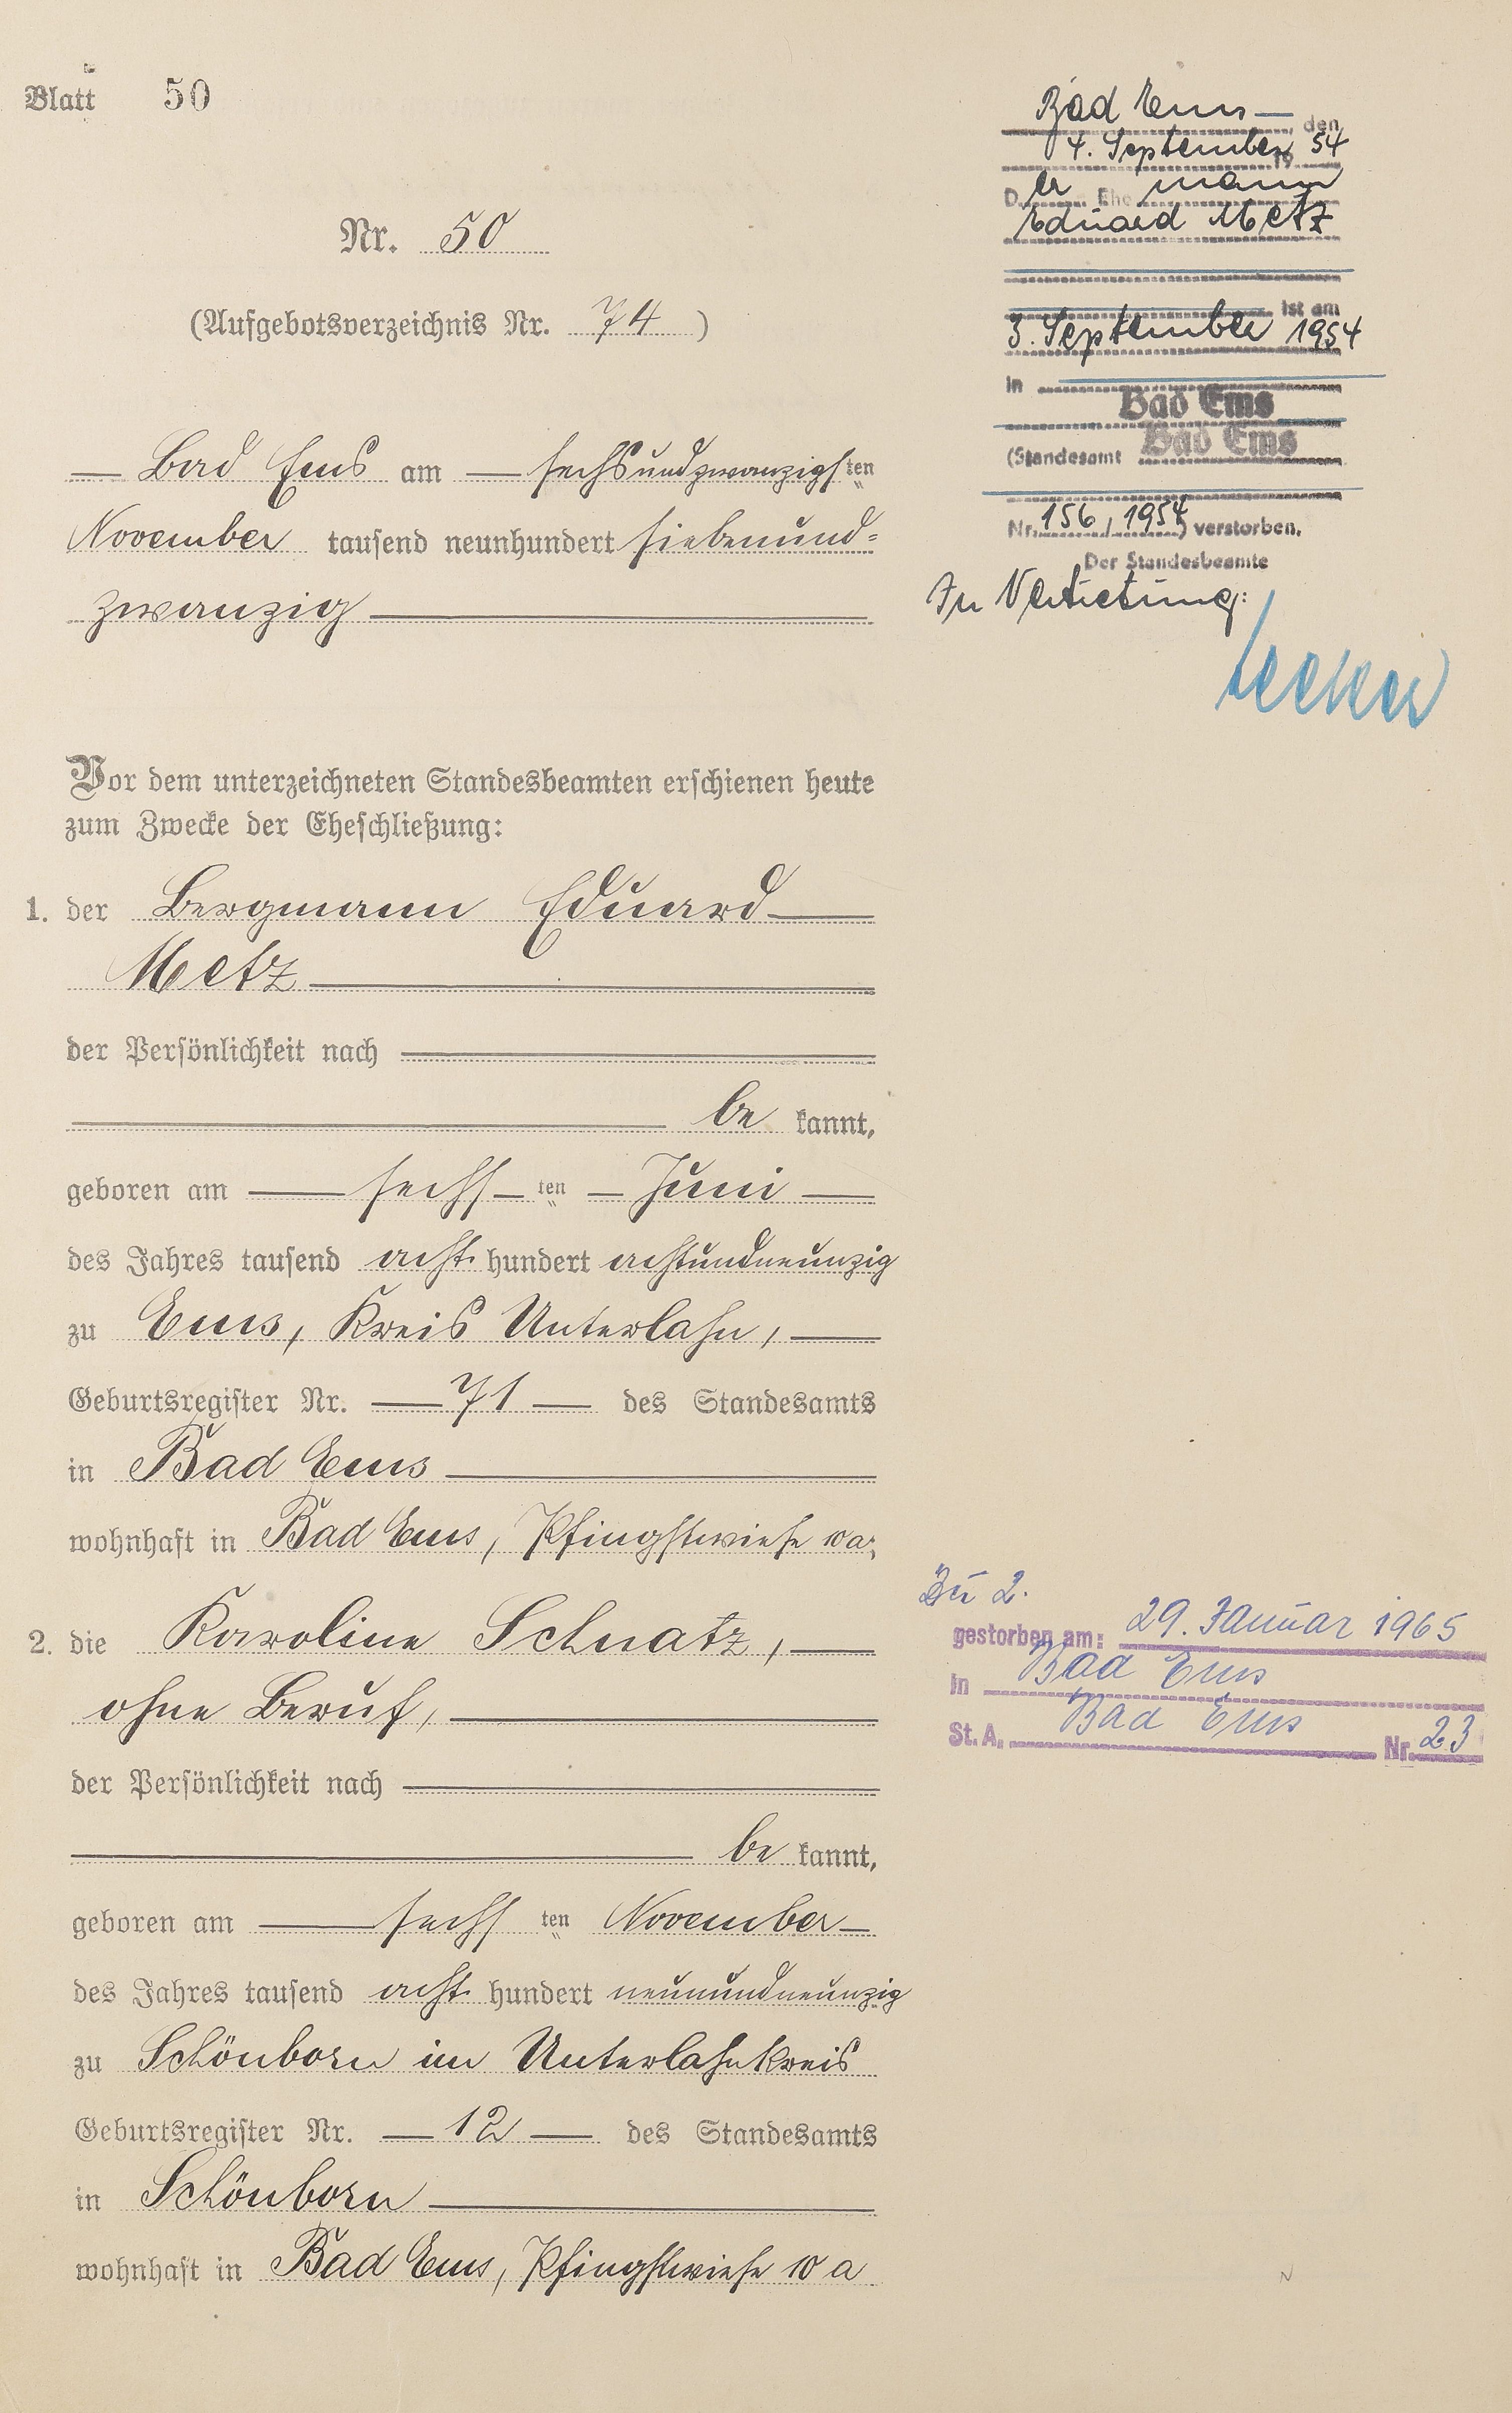 Blatt 50
Nr. 50
(Aufgebotsverzeichnis Nr. 74)
Bad Ems am sechsundzwanzigsten
November tausend neunhundert siebenund-
zwanzig
Vor dem unterzeichneten Standesbeamten erschienen heute
zum Zwecke der Eheschließung:
1. der Bergmann Eduard
Metz
der Persönlichkeit nach
be kannt,
geboren am sechsten Juni
des Jahres tausend acht hundert achtundneunzig
zu Ems, Kreis Unterlahn,
Geburtsregister Nr. 71 des Standesamts
in Bad Ems
wohnhaft in Bad Ems, Pfingstwiese 10a;
2. die Karoline Schnatz,
ohne Beruf,
der Persönlichkeit nach
be kannt,
geboren am sechsten November
des Jahres tausend acht hundert neunundneunzig
zu Schönborn im Unterlahnkreis
Geburtsregister Nr. 12 des Standesamts
in Schönborn
wohnhaft in Bad Ems, Pfingstwiese 10a
Bad Ems, den
4. September 1954
Der Ehemann
Eduard Metz
ist am
3. September 1954
in Bad Ems
(Standesamt Bad Ems
Nr. 156/1954) verstorben.
Der Standesbeamte
In Vertretung:
Zu 2.
gestorben am: 29. Januar 1965
in Bad Ems
St. A. Bad Ems Nr. 23